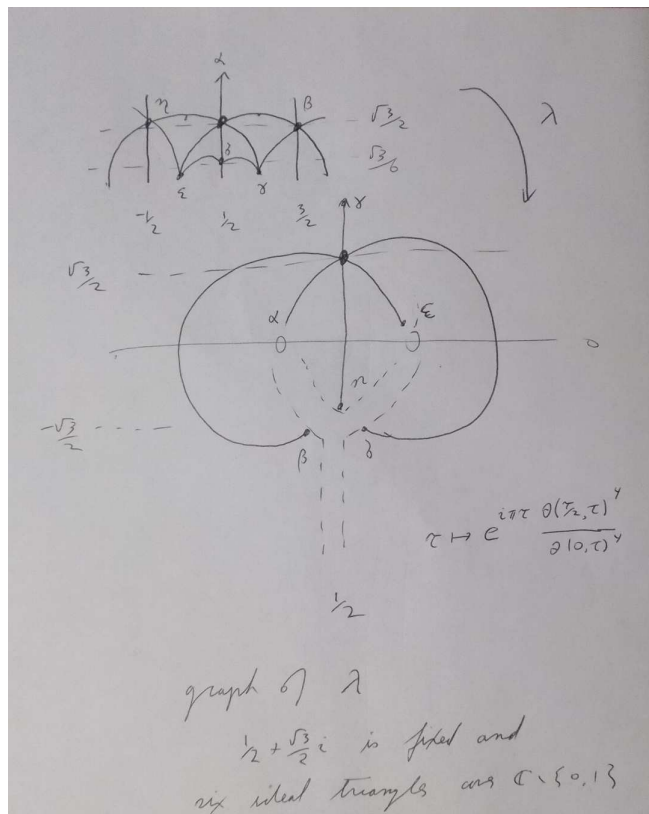 α
η
β
√3/2
λ
√3/6
δ
ε
γ
-1/2
1/2
3/2
γ
√3/2
α
ε
0
η
-√3/2
β
δ
τ ↦ e^{iπτ} θ(τ/2, τ)^4 / θ(0, τ)^4
1/2
graph of λ
1/2 + √3/2 i is fixed and
six ideal triangles cover ℂ \ {0,1}